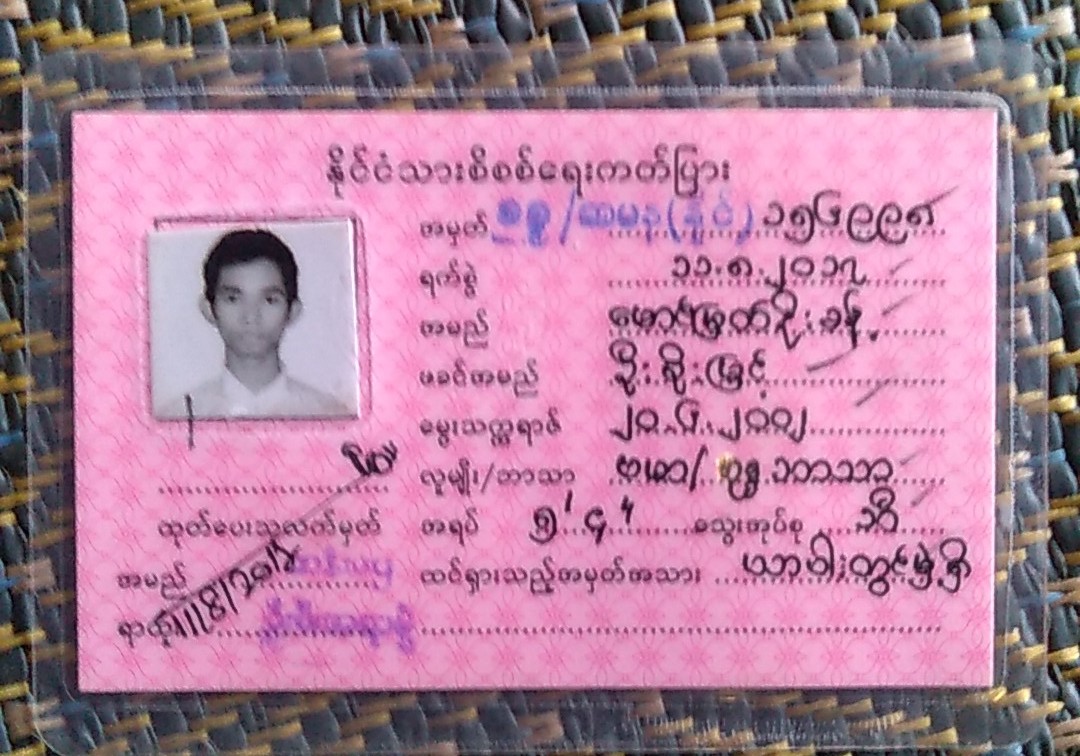 နိုင်ငံသားစိစစ်ရေးကတ်ပြား
အမှတ် /အမန(နိုင်) ၁၅၆၉၉၈
ရက်စွဲ ၁၁.၈.၂၀၁၇
အမည် မောင်မြတ်ဦးခန့်
ဖခင်အမည် ဦးစိုးမြင့်
မွေးသက္ကရာဇ် ၂၀.၆.၂၀၀၂
လူမျိုး/ဘာသာ ဗမာ/ဗုဒ္ဓဘာသာ
အရပ် ၅' ၄" သွေးအုပ်စု ဘီ
ထင်ရှားသည့်အမှတ်အသား ယာပါးတွင်မှဲ့ရှိ
ထုတ်ပေးသူလက်မှတ်
အမည်
ရာထူး
11/8/2017